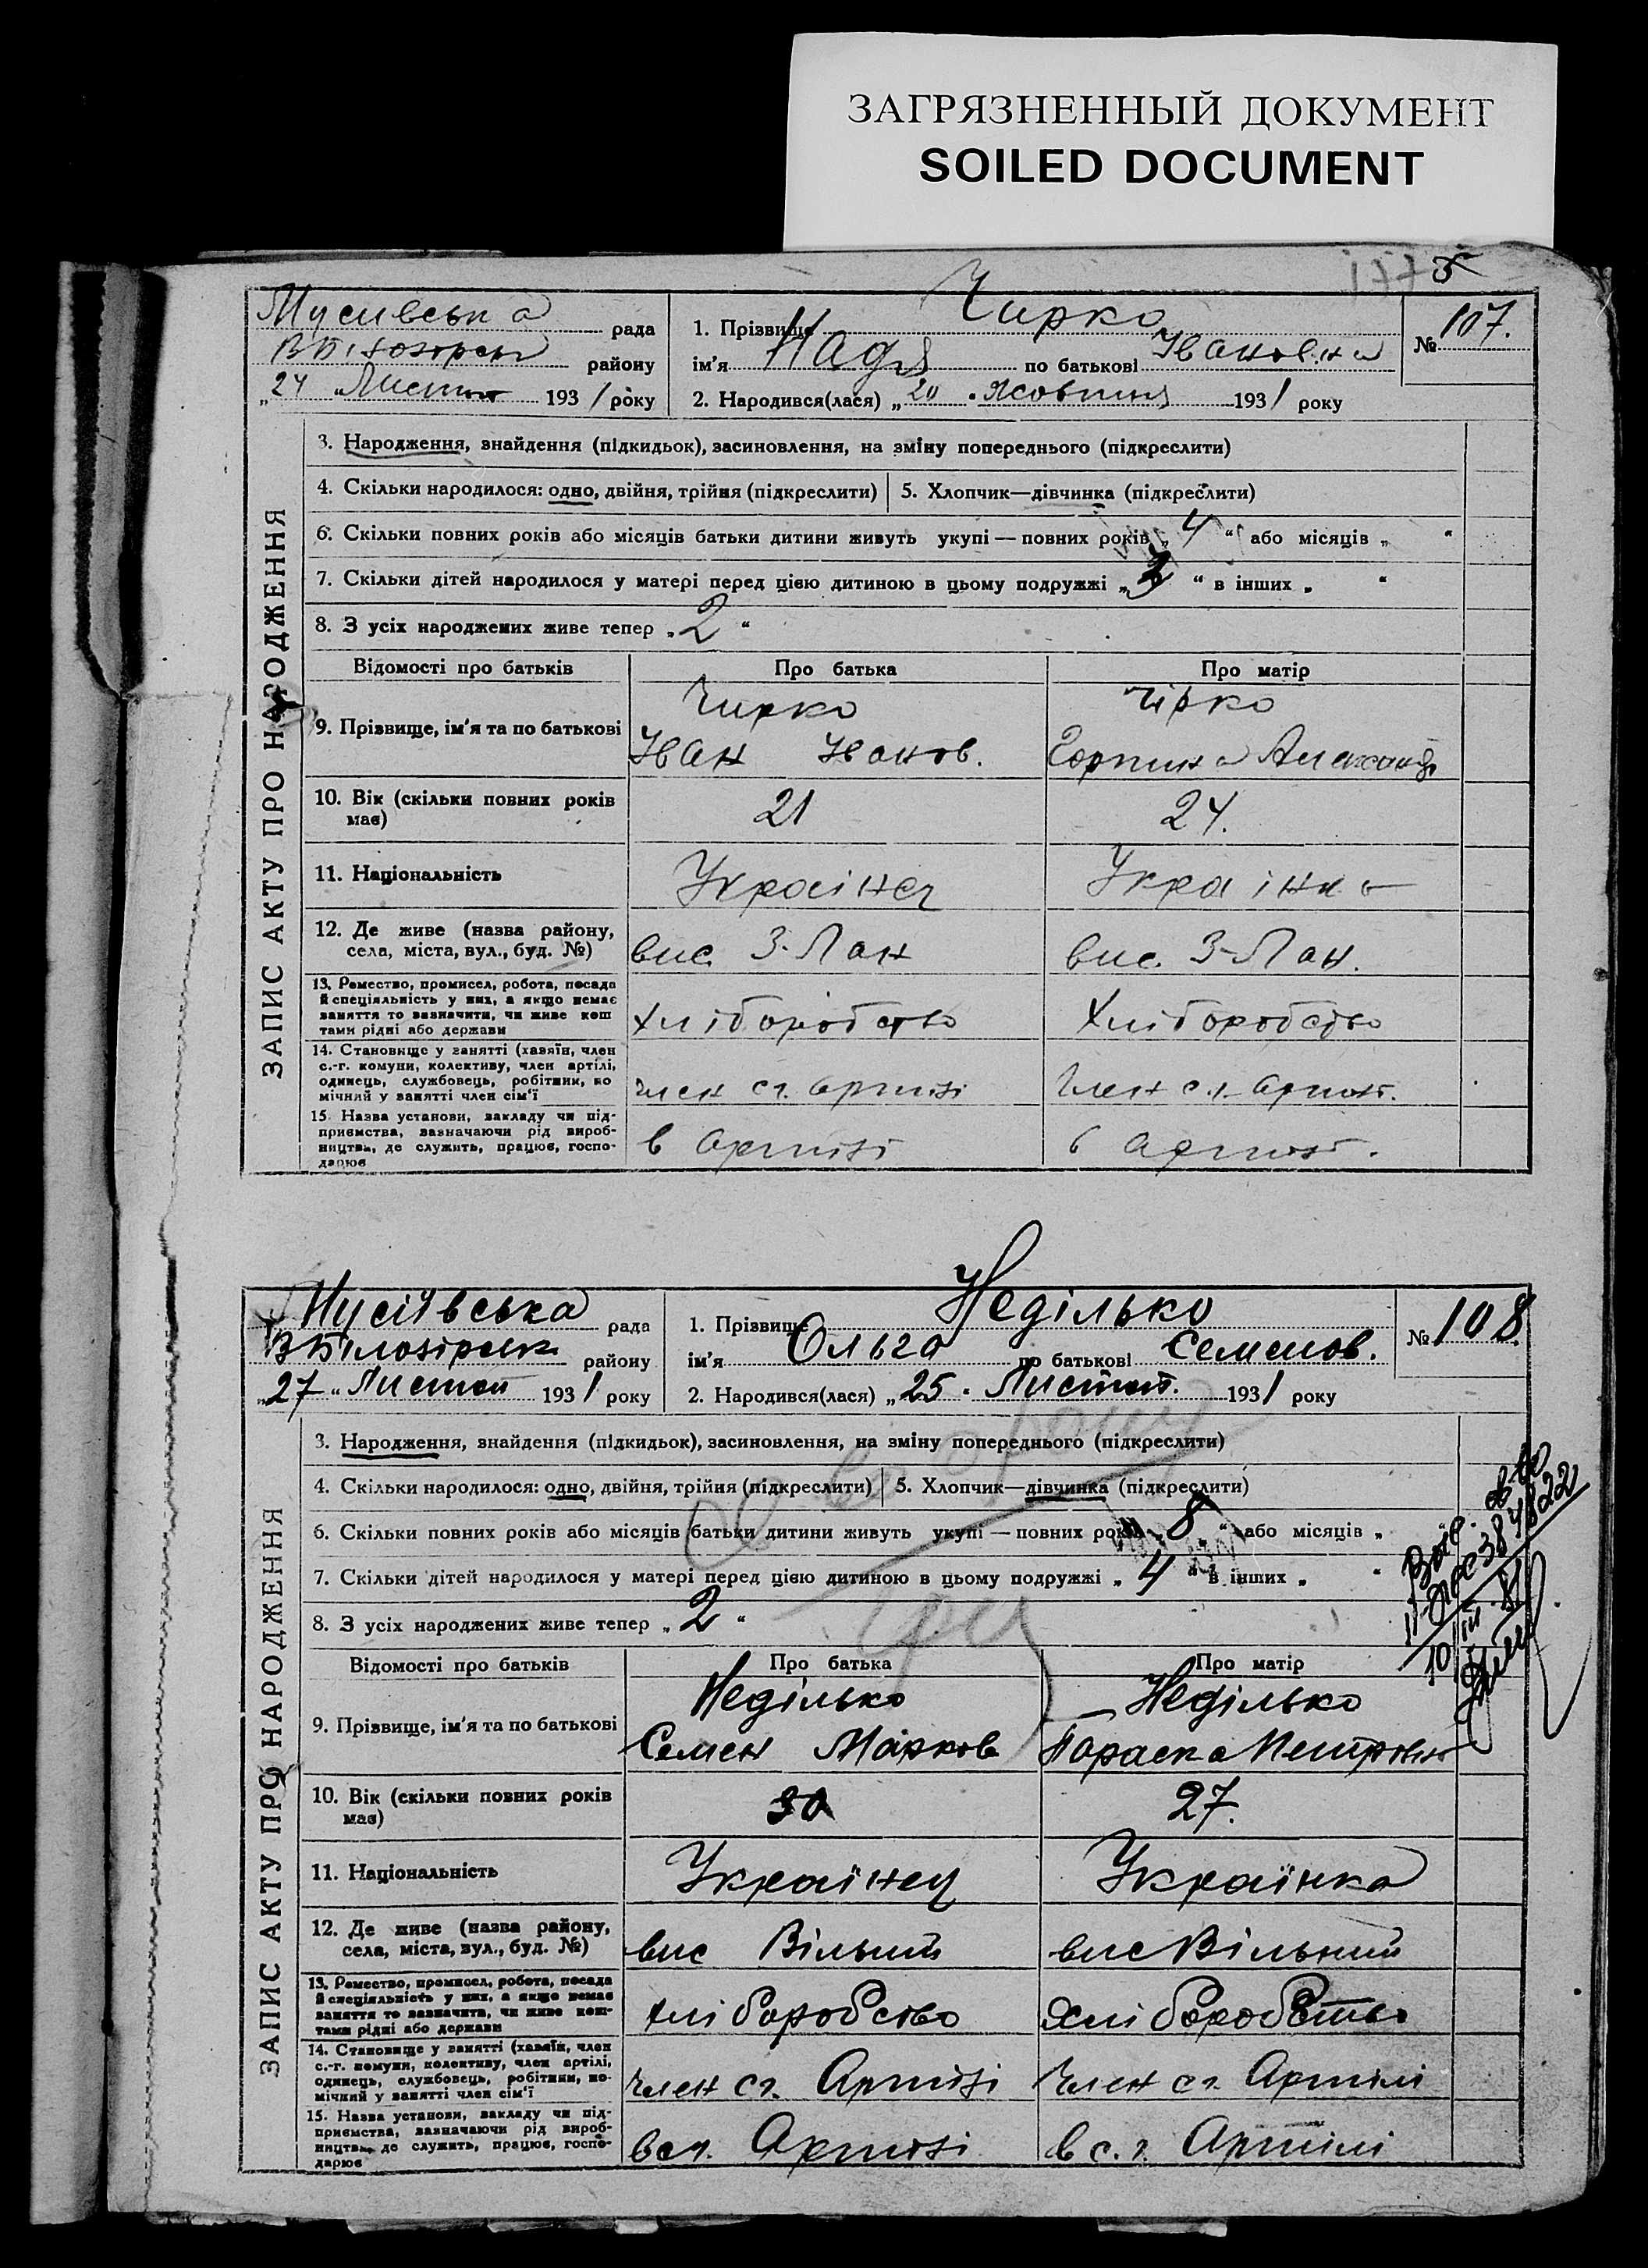 ЗАГРЯЗНЕННЫЙ ДОКУМЕНТ
SOILED DOCUMENT
Мусивська рада
району
24 " Листоп 1931 року
1. Прізвище Чирко
ім'я Надя по батькові Івановна
2. Народився(лася) „20 " Жовтня 1931 року
№ 107.
ЗАПИС АКТУ ПРО НАРОДЖЕННЯ
3. Народження, знайдення (підкидьок), засиновлення, на зміну попереднього (підкреслити)
4. Скільки народилося: одно, двійня, трійня (підкреслити) 5. Хлопчик—дівчинка (підкреслити)
6. Скільки повних років або місяців батьки дитини живуть укупі — повних років „ 4 " або місяців „ "
7. Скільки дітей народилося у матері перед цією дитиною в цьому подружжі „ " в інших „ "
8. З усіх народжених живе тепер „ 2 "
Відомості про батьків Про батька Про матір
9. Прізвище, ім'я та по батькові
Чирко Чірко
Іван Іванов. Горпина Александ
10. Вік (скільки повних років має) 21 24.
11. Національність Украінец Украінка
12. Де живе (назва району,
села, міста, вул., буд. №) вис. З-Лан вис. З-Лан.
13. Ремество, промисел, робота, посада
й спеціяльність у них, а якщо немає
заняття то зазначити, чи живе кош
тами рідні або держави
Хліборобство Хліборобство
14. Становище у занятті (хазяїн, член
с.-г. комуни, колективу, член артілі,
одинець, службовець, робітник, по
мічний у занятті член сім'ї
член сг. артілі Член с.г. артіл.
15. Назва установи, закладу чи під-
приємства, зазначаючи рід вироб-
ництва, де служить, працює, госпо-
дарює
в артілі в артіл.
Мусіівська рада
В Білозірськ району
„27 " Листоп 1931 року
1. Прізвище Неділько
ім'я Ольга по батькові Семенов.
2. Народився(лася) „25 " Листоп. 1931 року
№ 108.
ЗАПИС АКТУ ПРО НАРОДЖЕННЯ
3. Народження, знайдення (підкидьок), засиновлення, на зміну попереднього (підкреслити)
4. Скільки народилося: одно, двійня, трійня (підкреслити) 5. Хлопчик—дівчинка (підкреслити)
6. Скільки повних років або місяців батьки дитини живуть укупі — повних років „ 8 " або місяців „ "
7. Скільки дітей народилося у матері перед цією дитиною в цьому подружжі „ 4 " в інших „ "
8. З усіх народжених живе тепер „ 2 "
Відомості про батьків Про батька Про матір
9. Прізвище, ім'я та по батькові
Неділько Неділько
Семен Марков Параска Петровн
10. Вік (скільки повних років має) 30 27.
11. Національність Украінец Украінка
12. Де живе (назва району,
села, міста, вул., буд. №) вис Вільний вис Вільний
13. Ремество, промисел, робота, посада
й спеціяльність у них, а якщо немає
заняття то зазначити, чи живе кош-
тами рідні або держави
хліборобство хліборобство
14. Становище у занятті (хазяїн, член
с.-г. комуни, колективу, член артілі,
одинець, службовець, робітник, по-
мічний у занятті член сім'ї
член сг. Артілі Член сг. Артілі
15. Назва установи, закладу чи під-
приємства, зазначаючи рід вироб-
ництва, де служить, працює, госпо-
дарює
в сг. Артілі в с.г. Артілі